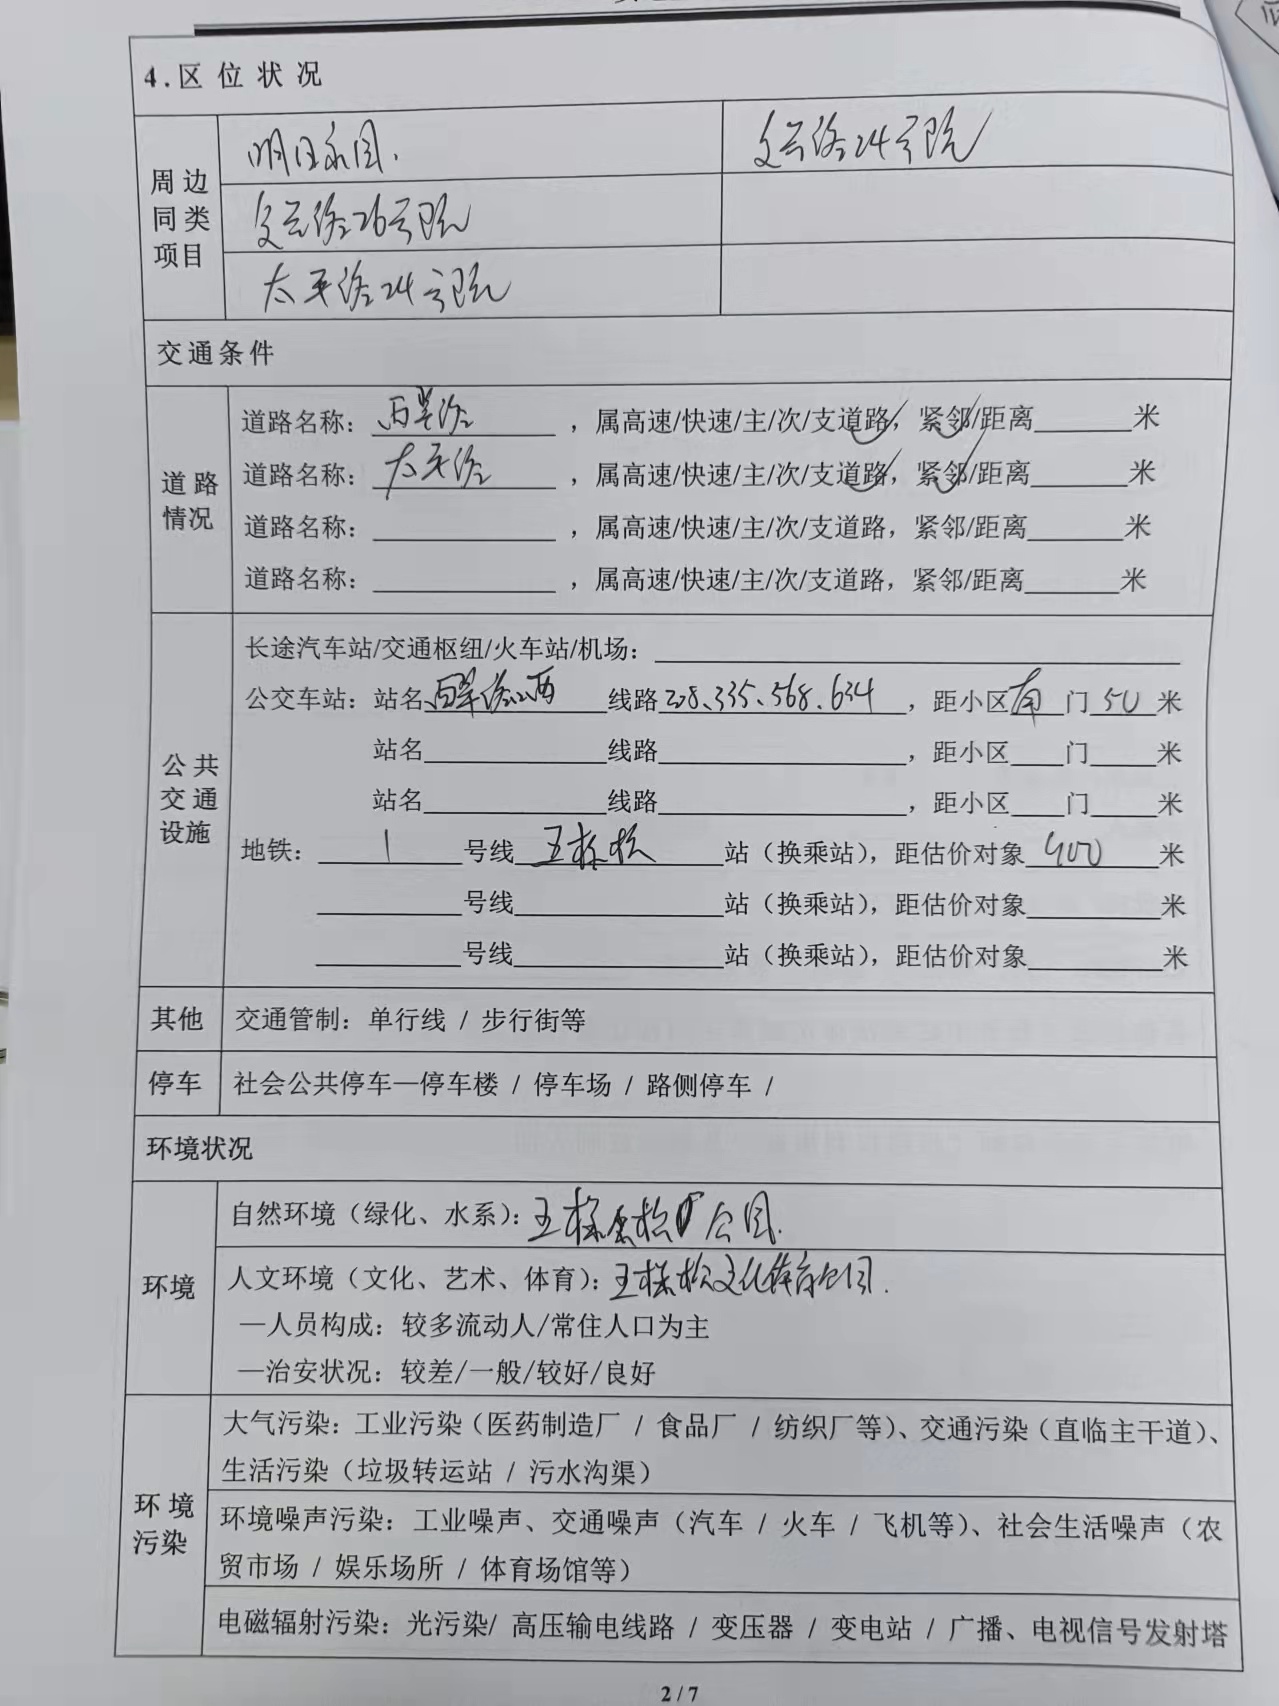 4.区位状况
周边同类项目
明日家园.
复兴路24号院
复兴路26号院
太平路24号院
交通条件
道路情况
道路名称：西翠路，属高速/快速/主/次/支道路，紧邻/距离 米
道路名称：太平路，属高速/快速/主/次/支道路，紧邻/距离 米
道路名称： ，属高速/快速/主/次/支道路，紧邻/距离 米
道路名称： ，属高速/快速/主/次/支道路，紧邻/距离 米
公共交通设施
长途汽车站/交通枢纽/火车站/机场：
公交车站：站名 线路 、335、568、634，距小区南门50米
站名 线路 ，距小区 门 米
站名 线路 ，距小区 门 米
地铁：1号线五棵松站（换乘站），距估价对象400米
号线 站（换乘站），距估价对象 米
号线 站（换乘站），距估价对象 米
其他
交通管制：单行线 / 步行街等
停车
社会公共停车—停车楼 / 停车场 / 路侧停车 /
环境状况
环境
自然环境（绿化、水系）：五棵松 公园.
人文环境（文化、艺术、体育）：五棵松文化体育公园.
—人员构成：较多流动人/常住人口为主
—治安状况：较差/一般/较好/良好
环境污染
大气污染：工业污染（医药制造厂 / 食品厂 / 纺织厂等）、交通污染（直临主干道）、
生活污染（垃圾转运站 / 污水沟渠）
环境噪声污染：工业噪声、交通噪声（汽车 / 火车 / 飞机等）、社会生活噪声（农
贸市场 / 娱乐场所 / 体育场馆等）
电磁辐射污染：光污染/ 高压输电线路 / 变压器 / 变电站 / 广播、电视信号发射塔
2 / 7